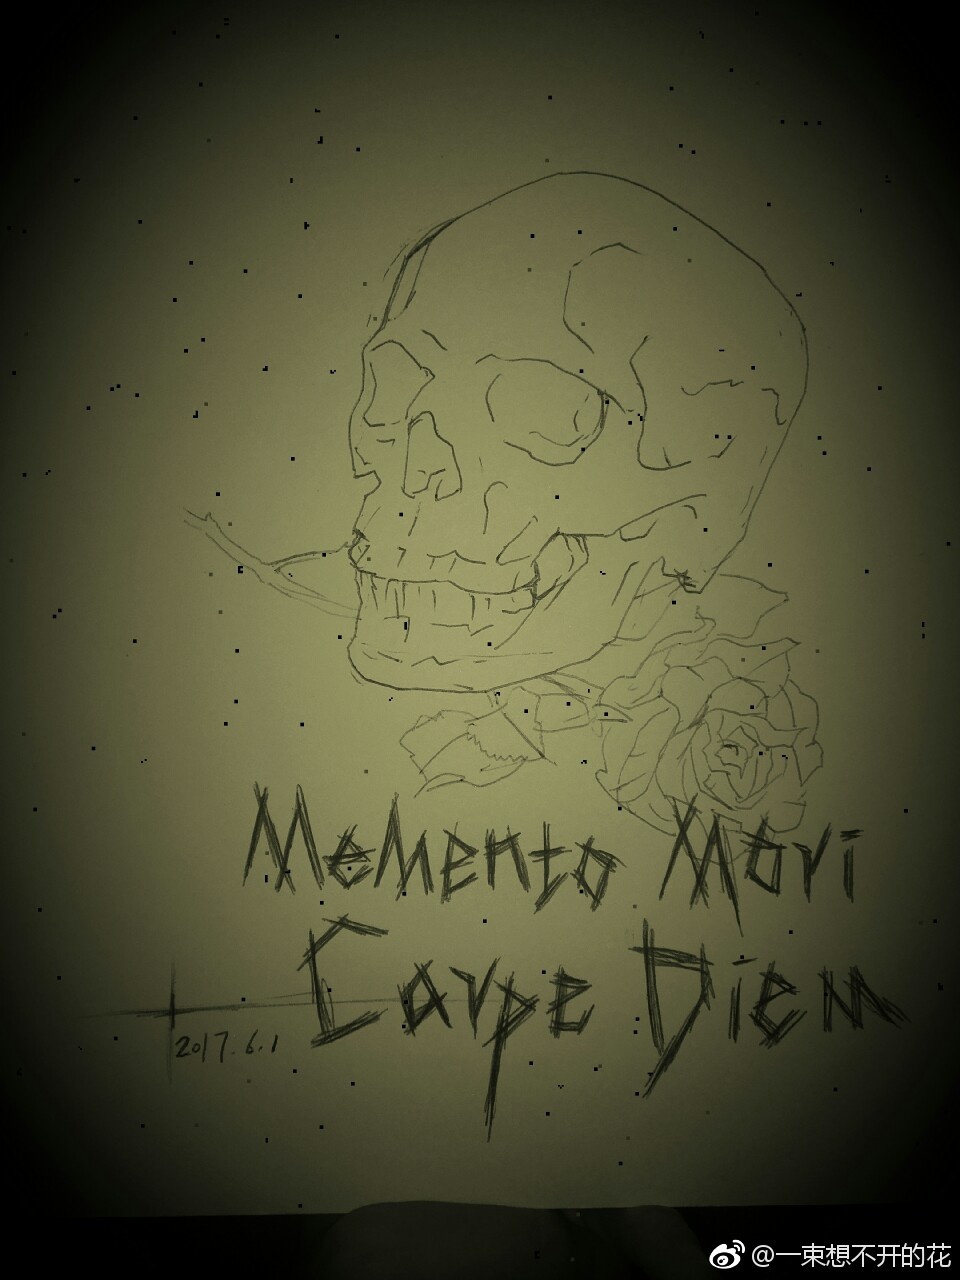 Memento Mori
Carpe Diem
2017.6.1
@一束想不开的花